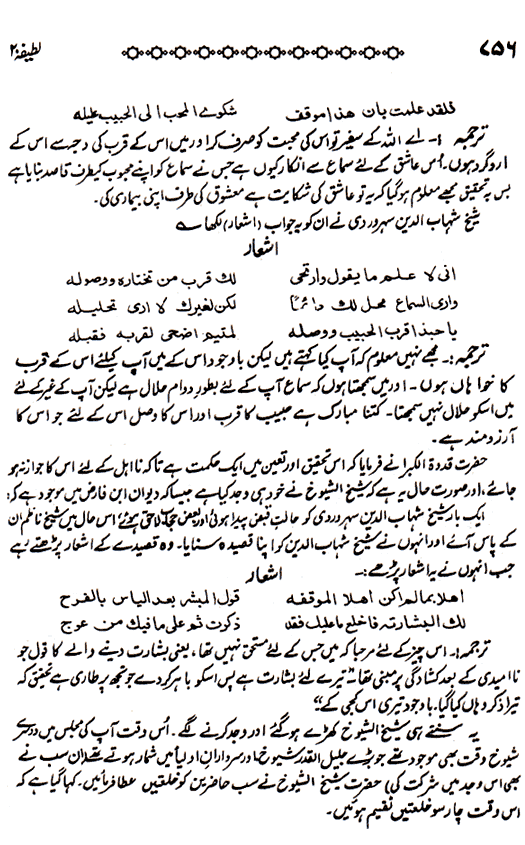 ۷۵۶
لطیفہ ۲۰
فلقد علمت بان هذا موقف شكوے المحب الى الحبيب عليله
ترجمہ :۔ اے اللہ کے سفیر تو اس کی محبت کو صرف کر اور میں اس کے قرب کی وجہ سے اس کے
اروگرد ہوں۔ اُس عاشق کے لئے سماع سے انکار کیوں ہے جس نے سماع کو اپنے محبوب کیطرف قاصد بنایا ہے
بس یہ تحقیق مجھے معلوم ہو گیا کہ یہ تو عاشق کی شکایت ہے معشوق کی طرف اپنی بیماری کی۔
شیخ شہاب الدین سہروردی نے ان کو یہ جواب (اشعار) لکھا ؎
اشعار
انى لا علم ما يقول وارتجى لك قرب من تختاره ووصوله
وارى السماع محل لك دائما لكن لغيرك لا ارى تحليله
يا حبذا قرب الحبيب ووصله لمتيم اضحى لقربه فقبله
ترجمہ :۔ مجھے نہیں معلوم کہ آپ کیا کہتے ہیں لیکن باوجود اس کے میں آپ کیلئے اس کے قرب
کا خواہاں ہوں ۔ اور میں سمجھتا ہوں کہ سماع آپ کے لئے بطور دوام حلال ہے لیکن آپ کے غیر کے لئے
میں اسکو حلال نہیں سمجھتا۔ کتنا مبارک ہے حبیب کا قرب اور اس کا وصل اس کے لئے جو اس کا
آرزو مند ہے۔
حضرت قدوۃ الکبرا نے فرمایا کہ اس تحقیق اور تعین میں ایک حکمت ہے تاکہ نااہل کے لئے اس کا جواز نہ ہو
جائے، اور صورت حال یہ ہے کہ شیخ الشیوخ نے خود ہی وجد کیا ہے جیسا کہ دیوان ابن فارض میں موجود ہے کہ:
ایک بار شیخ شہاب الدین سہروردی کو حالتِ قبض پیدا ہوئی اور بعض حجاب لاحق ہوئے! اس حال میں شیخ ناظم ان
کے پاس آئے اور انہوں نے شیخ شہاب الدین کو اپنا قصیدہ سنایا۔ وہ قصیدے کے اشعار پڑھتے رہے
جب انہوں نے یہ اشعار پڑھے :۔
اشعار
اهلا بمالم اكن اهلا الموقفه قول المبشر بعد الياس بالفرح
لك البشارته فاخلع ما عليك فقد ذكرت ثم على ما فيك من عوج
ترجمہ :۔ اس چیز کے لئے مرحبا کہ میں جس کے لئے مستحق نہیں تھا، یعنی بشارت دینے والے کا قول جو
نا امیدی کے بعد کشادگی پر مبنی تھا۔ "تیرے لئے بشارت ہے پس اسکو باہر کردے جو تجھ پر طاری ہے تحقیق کہ
تیرا ذکر وہاں کیا گیا، باوجود تیری اس کجی کے"
یہ سنتے ہی شیخ الشیوخ کھڑے ہو گئے اور وجد کرنے لگے۔ اُس وقت آپ کی مجلس میں دوسرے
شیوخ وقت بھی موجود تھے جو بڑے جلیل القدر شیوخ اور سردارانِ اولیا میں شمار ہوتے تھے، ان سب نے
بھی اس وجد میں شرکت کی) حضرت شیخ الشیوخ نے سب حاضرین کو خلعتیں عطا فرمائیں۔ کہا گیا ہے کہ
اس وقت چار سو خلعتیں تقسیم ہوئیں۔